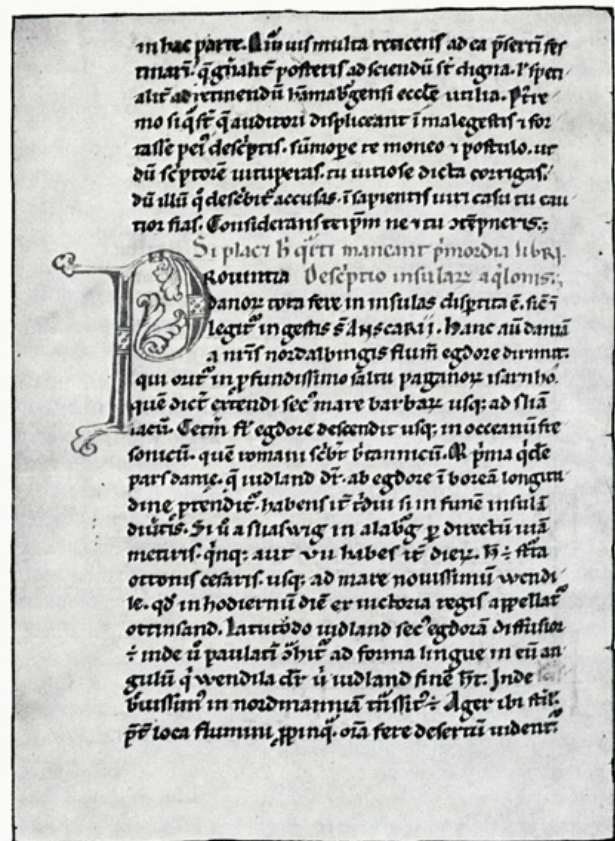 in hac parte. Aliū uis multa reticens ad ea p̄sertī fes
tinarī. q̄ gñalit̄ posteris ad sciendū st̄ digna. ł speti
alit̄ ad retinendū hāmabᵍensi eccłe utilia. Pᵗre
mo si q̄ st̄ q̄ auditori displiceant ī malegestis ⁊ for
tasse peiꝰ desc̄ptis. sūmoꝑe te moneo ⁊ postulo. ut
dū sc̄ptorē uituperas. tu uitiose dicta corrigas.
dū illū q̄ desc̄bit̄ accusas. ī sapientis uiri casu tu cau
tior fias. Considerans teip̄m ne ⁊ tu ꝯtēpneris.
Si placⁱ h̄ mancant p̄mordia libri.
PROUINTIA Desc̄ptio insulaꝝ aq̄lonis.
danoꝝ tota fere in insulas disꝑtita ē. sic̄ ⁊
legit̄ in gestis s̄ ANSCARII. Hanc aū daniā
a nr̄is nordalbingis flum̄ egdore dirimit.
qui orit̄ in ꝓfundissimo saltu paganoꝝ isarnho.
quē dic̄t extendi sec̄ mare barbaꝝ usq; ad sliā
lacū. Cet̄m fł egdore descendit usq; in occeanū fre
sonicū. quē romani sc̄bt̄ b̄tannicū. p̄ma q̄dē
pars danię. q̄ iudland dr̄. ab egdore ī boreā longitu
dine p̄tendit̄. habens it̄ t̄diui si in funē insulā
diūtis. Si ū a sliaswig in alabᵍ ꝑ directū uiā
metiris. q̄nq; aut VII habes it̄ dieꝝ. H̄ ÷ st̄ta
ottonis cesaris. usq; ad mare nouissimū wendi
le. qd̄ in hodiernū diē ex uictoria regis appellat̄
ottinsand. Latitᵒdo iudland sec̄ egdorā diffusior
÷ inde ū paulatī ꝯhit̄ ad forma lingue in eū an
gulū q̄ wendila dr̄ ū iudland finē ht̄. Inde
b̄uissimꝰ in nordmanniā tn̄ssitꝰ ÷ Ager ibi st̄il'.
p̄t̄ loca flumini ꝓpinq̄. oīa fere desertū uident̄